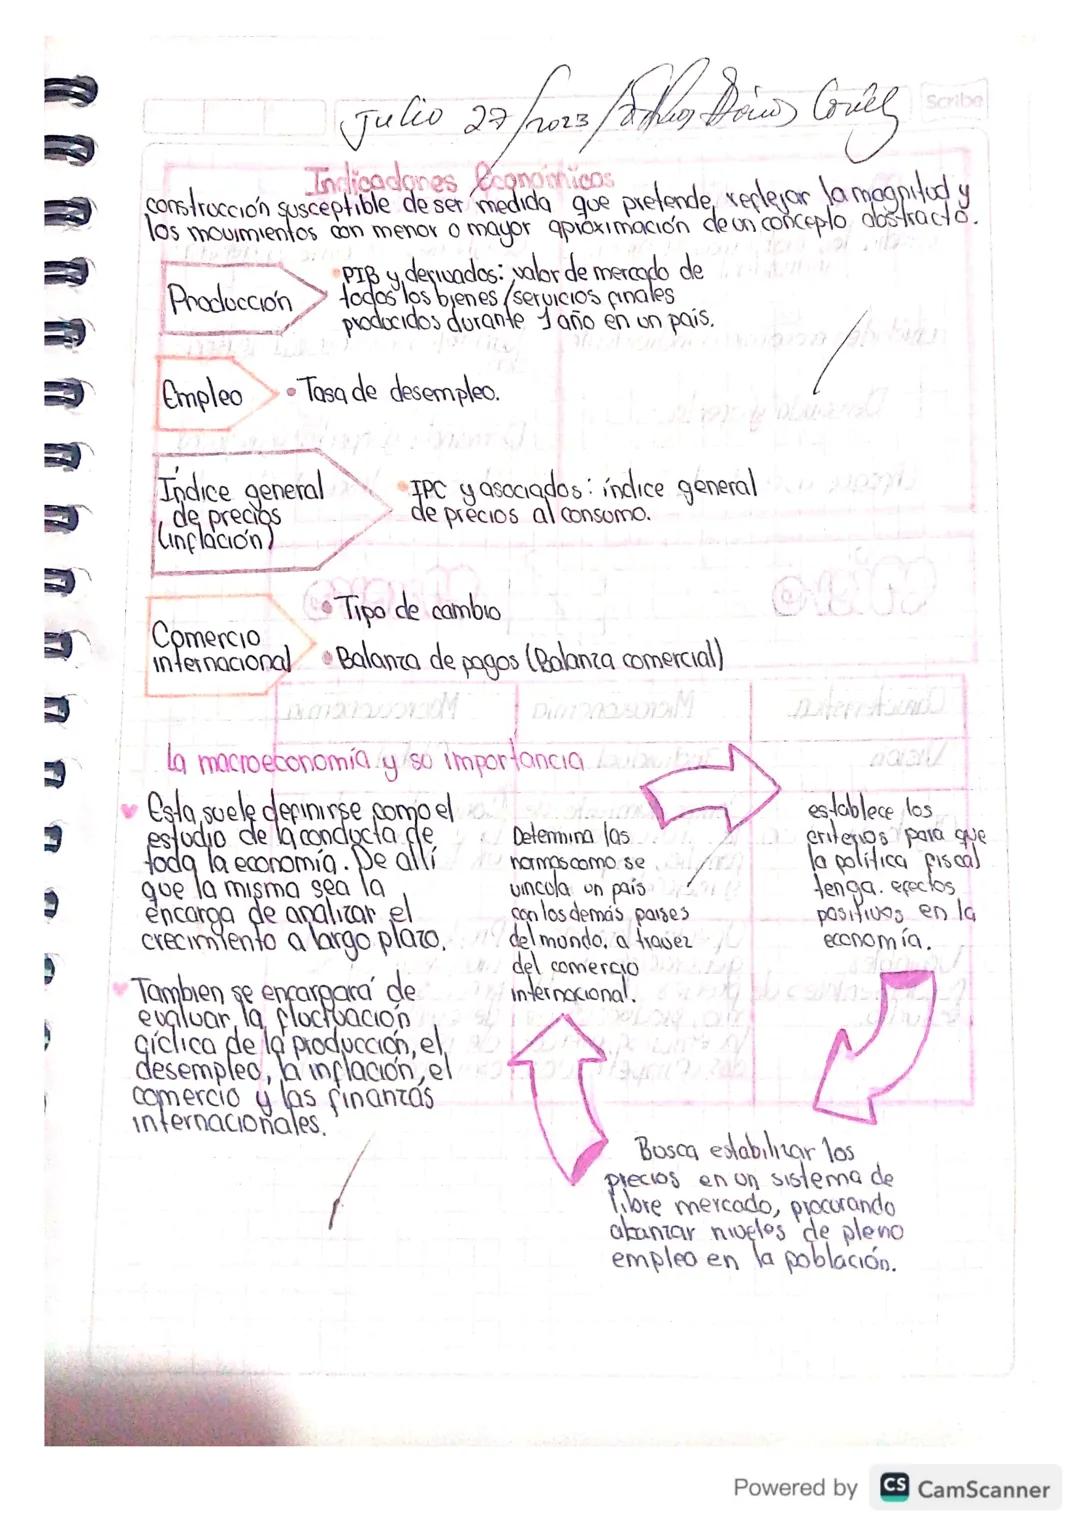 Julio 27/2023
Scribe
Indicadores Económicos
construcción susceptible de ser medida que pretende reflejar la magnitud y
los movimientos con menor o mayor aproximación de un concepto abstracto.
Producción
• PIB y derivados: valor de mercado de
todos los bienes/servicios finales
producidos durante 1 año en un país.
Empleo
• Tasa de desempleo.
Índice general
de precios
(inflación)
• IPC y asociados: índice general
de precios al consumo.
Comercio
internacional
• Tipo de cambio
• Balanza de pagos (Balanza comercial)
La macroeconomía y su importancia
Esta suele definirse como el
estudio de la conducta de
toda la economía. De allí
que la misma sea la
encarga de analizar el
crecimiento a largo plazo.
Tambien se encargará de
evaluar la fluctuación
cíclica de la producción, el
desempleo, la inflación, el
comercio y las finanzas
internacionales.
Determina las
normas como se
vincula un país
con los demás paises
del mundo. a travez
del comercio
internacional.
establece los
criterios para que
la política fiscal
tenga. efectos
positivos en la
economía.
Busca estabilizar los
precios en un sistema de
libre mercado, procurando
abanzar niveles de pleno
empleo en la población.
Powered by CS CamScanner